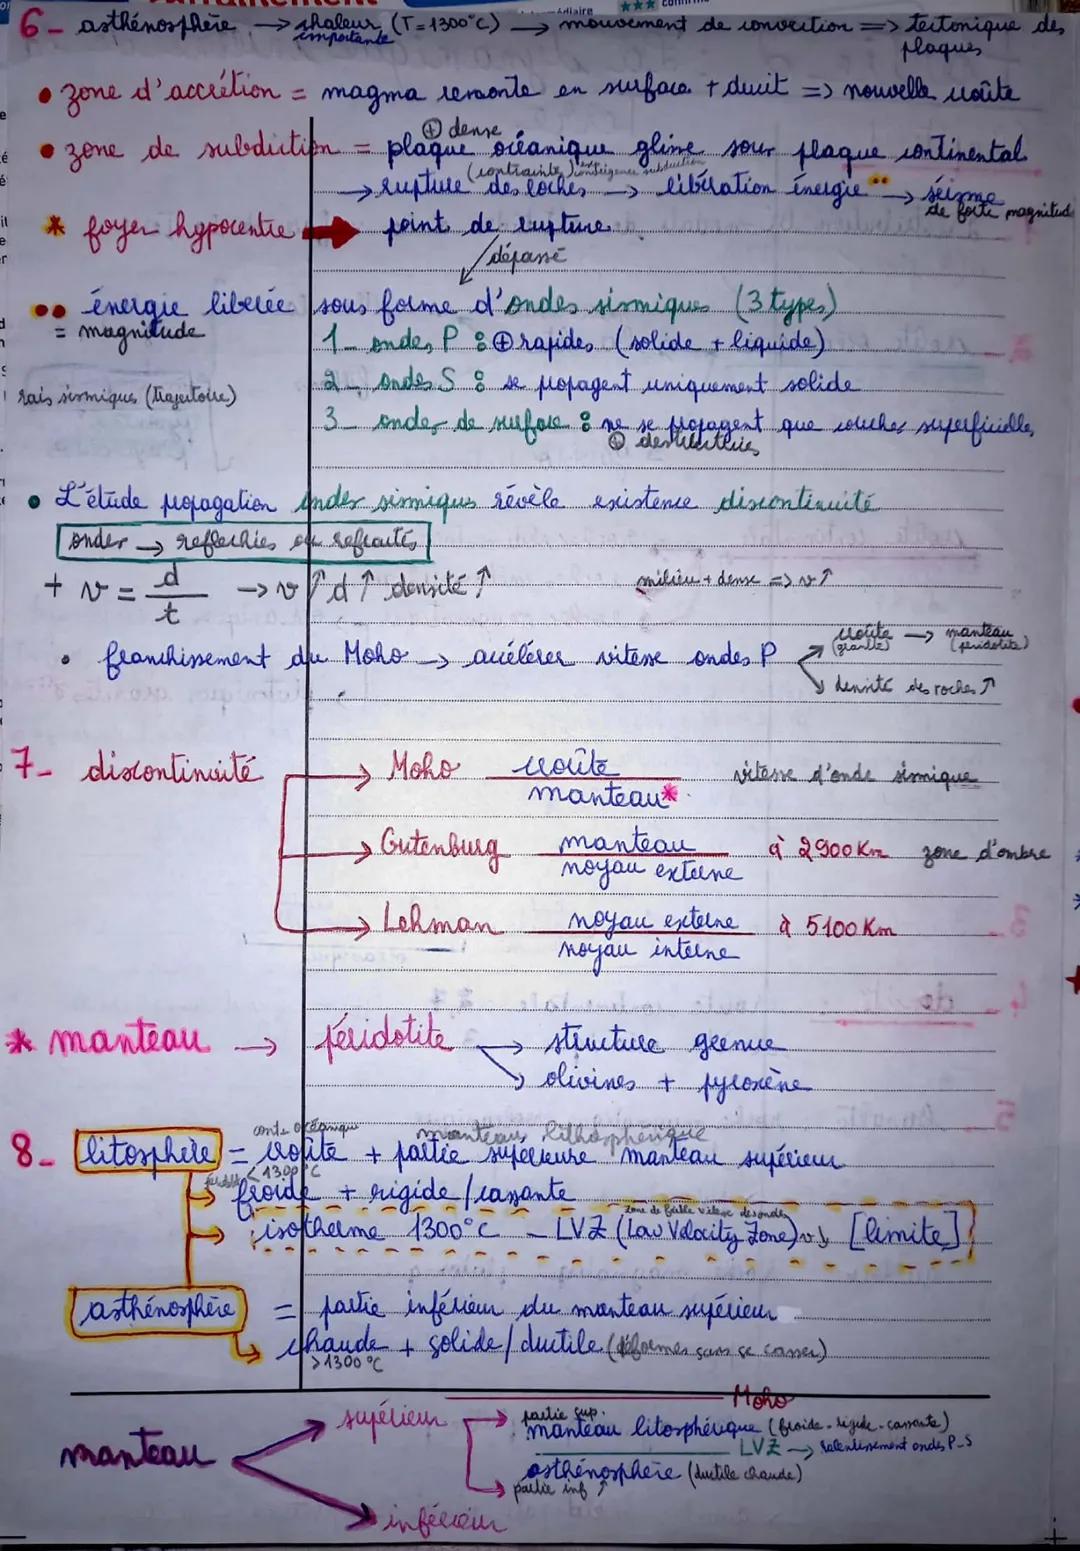 6_ asthénosphère → chaleur importante (T=1300°C) → mouvement de convection => tectonique des plaques
• zone d'accrétion = magma remonte en surface + durcit => nouvelle croûte
• zone de subduction = plaque océanique ⊕ dense glisse sous plaque continental
(contrainte) convergence subduction
→ rupture des roches → libération énergie •• → séisme de forte magnitude
* foyer hypocentre → point de rupture
dépassé
•• énergie liberée sous forme d'ondes sismiques (3 types)
= magnitude
1_ ondes P : ⊕ rapides (solide + liquide)
2_ ondes S : se propagent uniquement solide
rais sismiques (trajectoire)
3_ ondes de surface : ne se propagent que couches superficielles
⊕ destructrices
• L'étude propagation ondes sismiques révèle existence discontinuité
ondes → reflechies ou refractés
+ v = d/t → v ↑ d ↑ densité ↑ milieu + dense => v ↑
• franchissement du Moho → accélérer vitesse ondes P
↗ croûte (granite) → manteau (péridotite)
↘ densité des roches ↑
7_ discontinuité
→ Moho croûte / manteau* vitesse d'onde sismique
→ Gutenburg manteau / noyau externe à 2900 Km zone d'ombre
→ Lehman noyau externe / noyau interne à 5100 Km
* manteau → péridotite → structure grenue
↘ olivines + pyroxène
8_ litosphère = croûte + partie supérieure manteau supérieur
manteau lithosphérique
→ froide + rigide / cassante
< 1300°C
zone de faible vitesse des ondes
→ isotherme 1300°C _ LVZ (Low Velocity Zone) v ↓ [limite]
asthénosphère = partie inférieur du manteau supérieur
→ chaude + solide / ductile (déformes sans se casser)
>1300°C
Moho
manteau → supérieur → partie sup. manteau litosphérique (froide - rigide - cassante)
LVZ → ralentissement ondes P-S
→ asthénosphère (ductile chaude)
partie inf ↑
→ inférieur